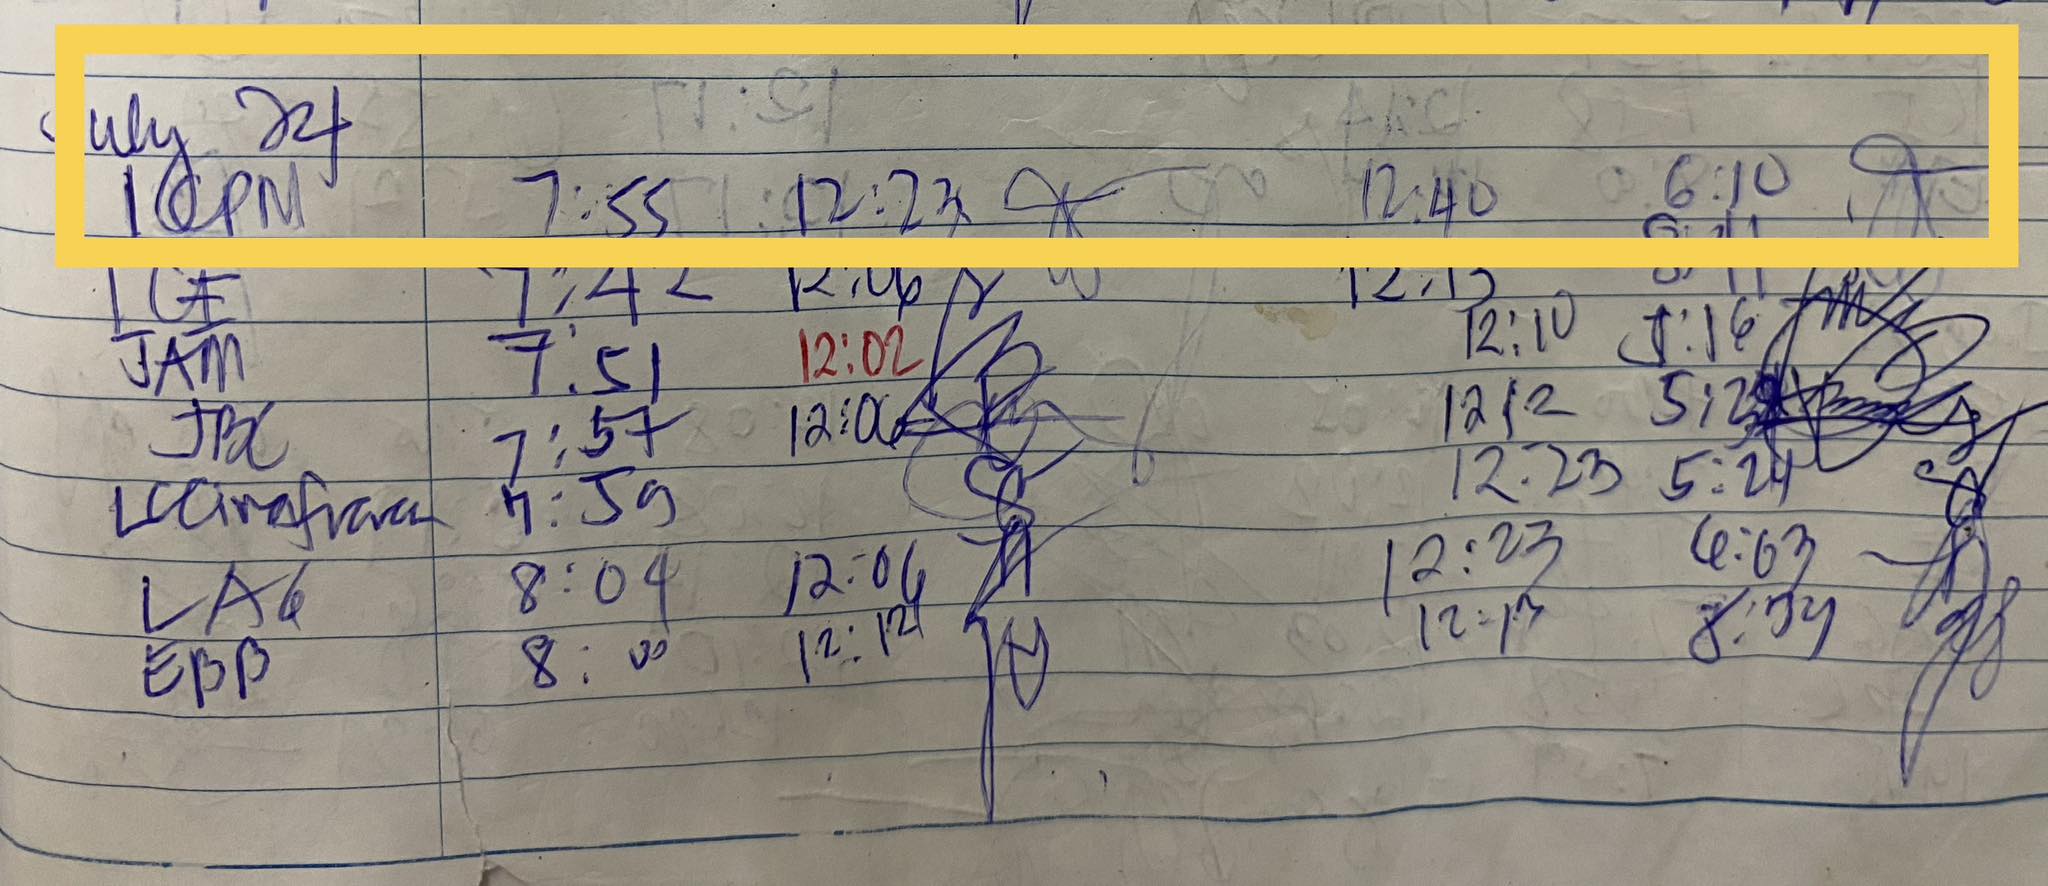 July 24
7:55 12:23 12:40 6:10
LCE 7:42 12:06 12:13
JAM 7:51 12:02 12:10 5:16
7:57 12:06 12:12
7:59 12:23 5:24
LAG 8:04 12:06 12:23 6:03
EBB 8:00 12:12 12:17